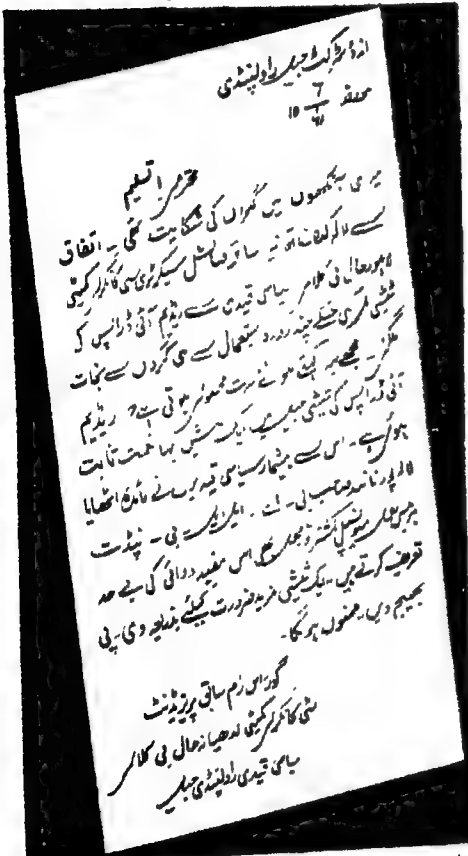 از ڈسٹرکٹ جیل راولپنڈی
مورخہ ۶/۴۱ ۱۵
محترم تسلیم
میری آنکھوں میں گکروں کی شکایت تھی۔ اتفاق
سے لالہ سابق فنانشل سیکرٹری سی کانگرس کمیٹی
لاہور حال بی کلاس سیاسی قیدی سے ریڈیم آئی ڈراپس کی
شیشی جسکے چند روزہ استعمال سے ہی گکروں سے نجات
مل گئی۔ مجھے یہ کہتے ہوئے مسرت محسوس ہوتی ہے، ریڈیم
آئی ڈراپس کی شیشی جیل میں ایک بیش بہا نعمت ثابت
ہوئی ہے۔ اس سے بیشمار سیاسی قیدیوں نے فائدہ اٹھایا
لالہ صاحب بی۔ اے۔ ایل ایل۔ بی۔ پنڈت
میونسپل کمشنر بھی اس مفید دوائی کی بے حد
تعریف کرتے ہیں۔ ایک شیشی مزید ضرورت کیلئے بذریعہ وی۔پی
بھیج دیں۔ ممنون ہوں گا۔
گوراس رام سابق پریذیڈنٹ
سٹی کانگرس کمیٹی لدھیانہ حال بی کلاس
سیاسی قیدی راولپنڈی جیل